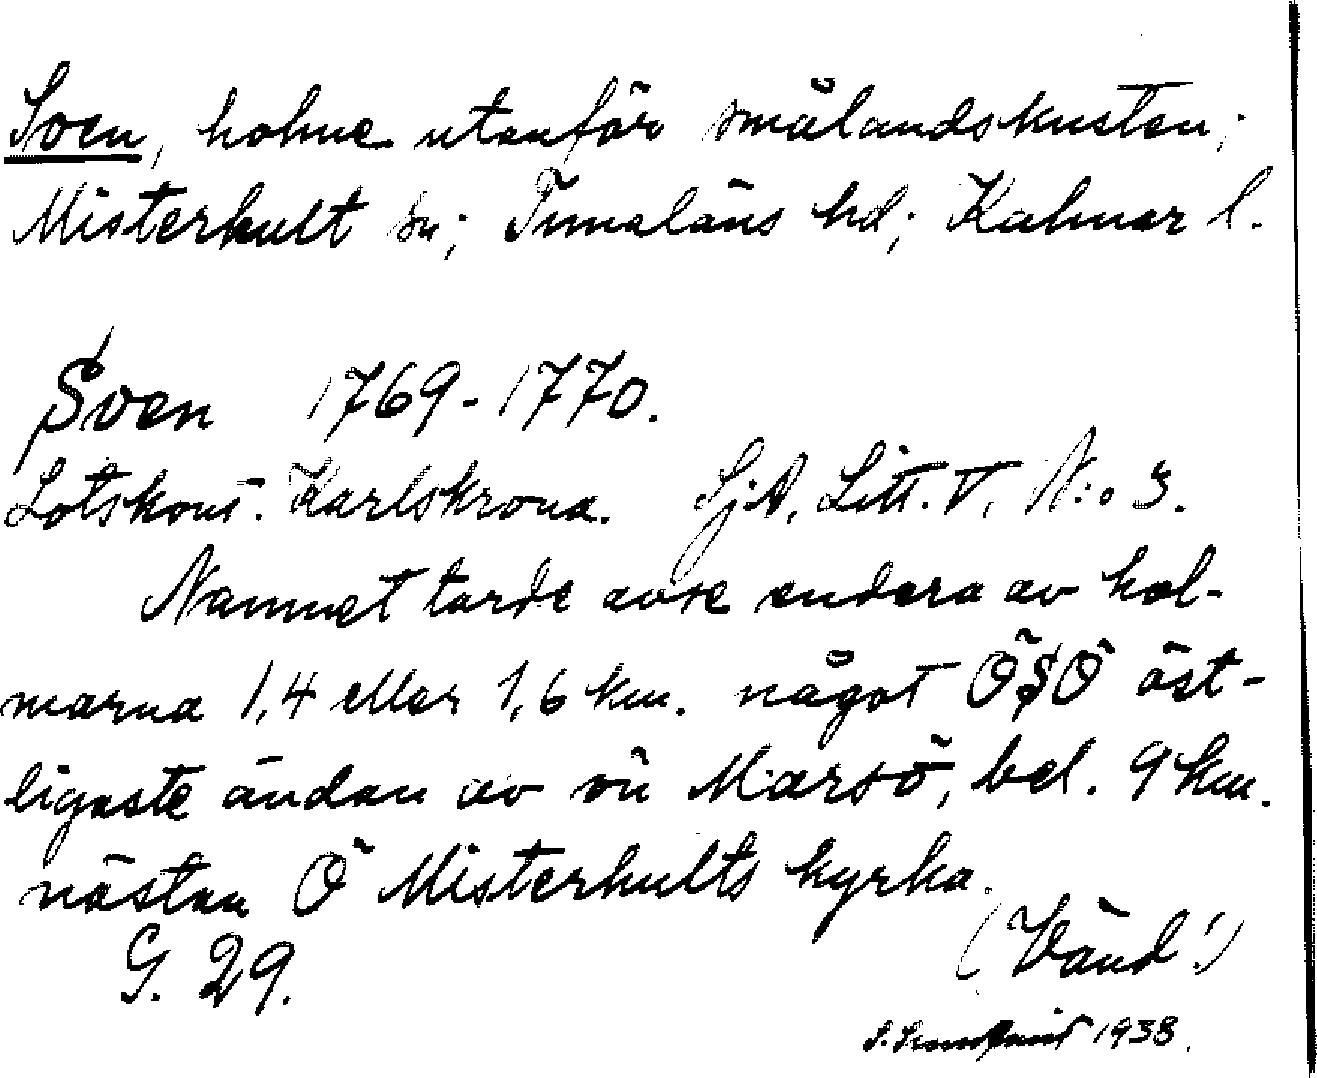 Sven, holme utanför smålandskusten;
Misterhult sn; Tunaläns hd; Kalmar l.
Sven 1769-1770.
Lotskont. Karlskrona. Sj.A. Litt. V, N:o 3.
Namnet torde avse endera av hol-
marna 1,4 eller 1,6 km. något ÖSÖ öst-
ligaste ändan av ön Marsö, bel. 9 km.
nästan Ö Misterhults kyrka.
(Vänd!)
G. 29.
1938.